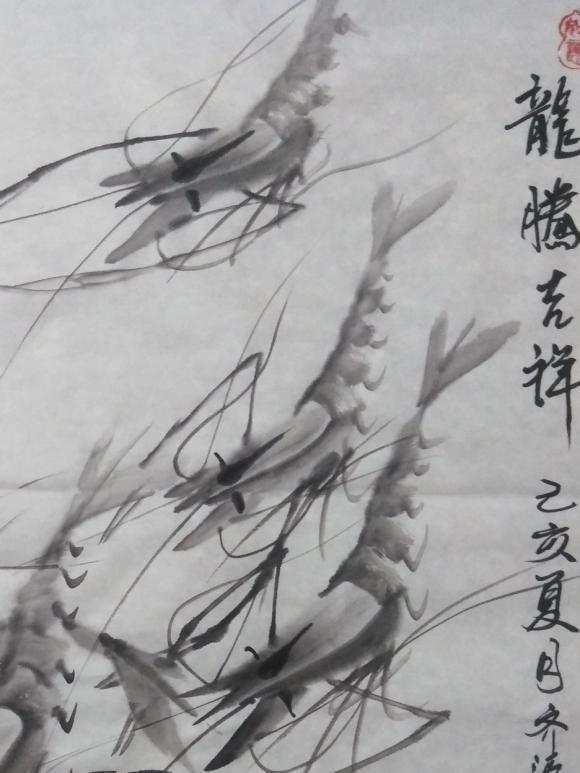 龍騰吉祥 己亥夏月齐